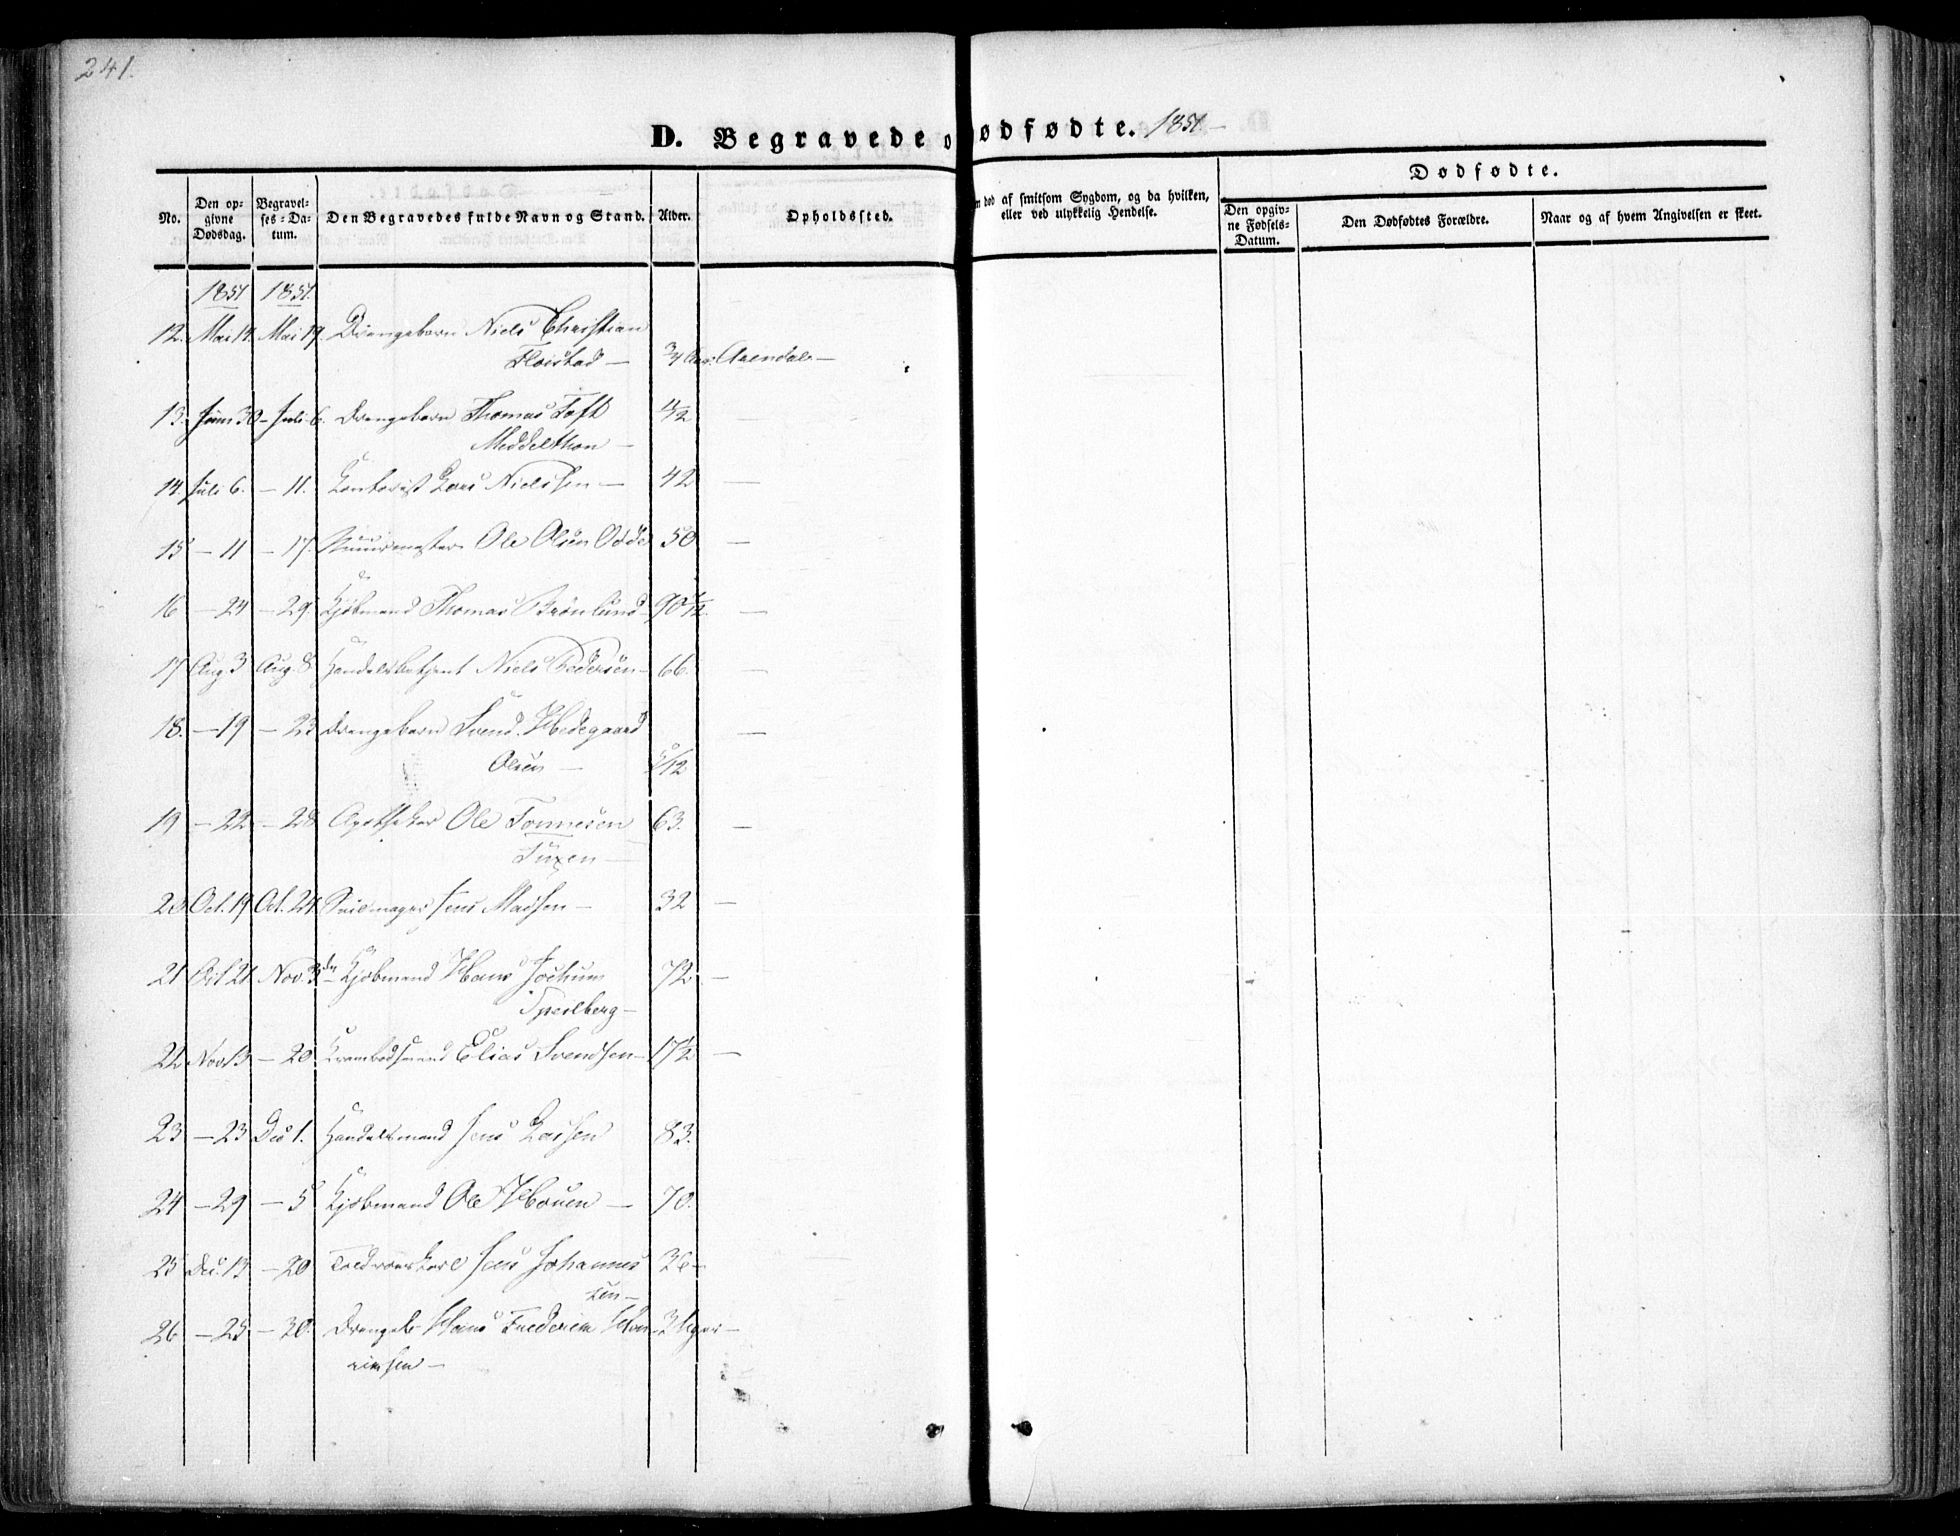 241.
D. Begravede o ødfødte. 1851.
No.
Den op-
givne
Dødsdag.
Begravel-
ses-Da-
tum.
Den Begravedes fulde Navn og Stand.
Alder.
Opholdssted.
død af smitsom Sygdom, og da hvilken,
eller ved ulykkelig Hendelse.
Dødfødte.
Den opgiv-
ne Fødsels-
Datum.
Den Dødfødtes Forældre.
Naar og af hvem Angivelsen er skeet.
1851 1851.
12. Mai 14. Mai 19. Drengebarn Niels Christian
Floistad — 3/4 Aar. Arendal —
13. Juni 30 — Juli 6. Drengebarn Thomas Toft
Middelthon — —
14. Juli 6. — 11. Kontorist Lars Nielssen — 42 —
15 — 11 — 17. Muurmester Ole Olsen Odde 50 —
16 — 24 — 29 Kjøbmand Thomas Brönlund 90 —
17 Aug 3 Aug 8 Handelsbetjent Niels Pedersen — 66. —
18. — 19 — 23 Drengebarn Svend Hedegaard —
Olsen — /12
19 — 22 — 28 Apotheker Ole Tonnesen 63. —
Tuxen —
20 Oct. 19 Oct. 24 Seilmager Jens Madsen — 32 —
21 Oct 21 Nov. 3 Kjøbmand Hans Jochum 72 —
Speilberg —
22 Nov 13 — 20 Krambodsvend Elias Svendsen — 17 1/2 —
23 — 23 Dec 1. Handelsmand Jens Larsen 83.
24 — 29 — 5 Kjøbmand Ole Houen — 70.
25 Dec. 13 — 20 Jens Johannes 36 —
sen —
26 — 25 — 30. Drengeb. Hans Frederik
3 Uger —
riksen —